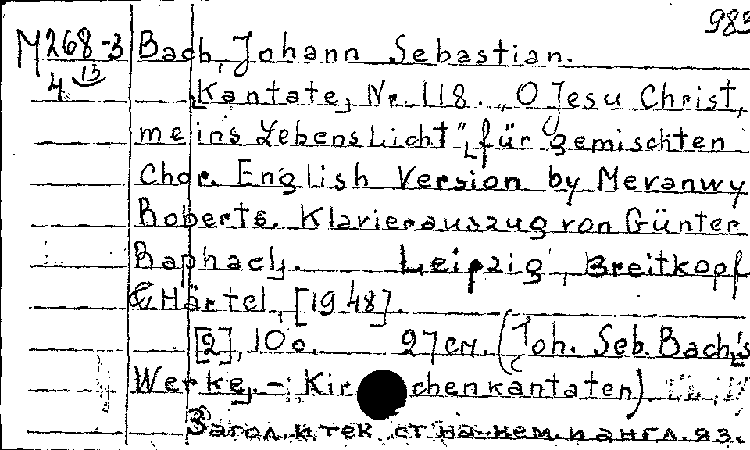 983
M 268-3 Bach, Johann Sebastian.
4 13 Kantate, Nr. 118. „O Jesu Christ,
meins Lebens Licht", für gemischten
Chor. English Version by Meranwy
Roberts. Klavierauszug von Günter
Raphael. Leipzig, Breitkopf
& Härtel, [1948].
[2], 10 c. 27 см. (Joh. Seb. Bach's
Werke, - Kirchenkantaten)
Загол. и текст на нем. и англ. яз.